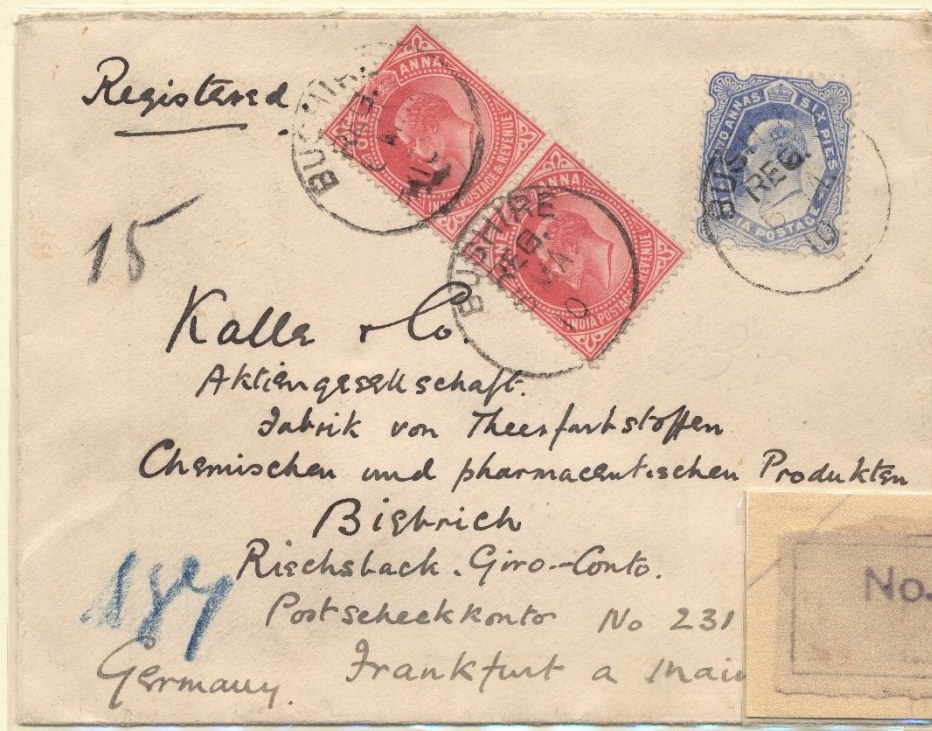 Registered.
ONE ANNA
INDIA POSTAGE & REVENUE
BUSHIRE
REG.
ANNA
INDIA POSTAGE REVENUE
BUSHIRE
REG.
10
TWO ANNAS SIX PIES
INDIA POSTAGE
REG.
10
15
Kalle & Co.
Aktiengesellschaft.
Fabrik von Theerfarbstoffen
Chemischen und pharmaceutischen Produkten
Biebrich
Riechsback. Giro-Conto.
Postscheckkonto No 231
Frankfurt a Main
Germany.
187
No.